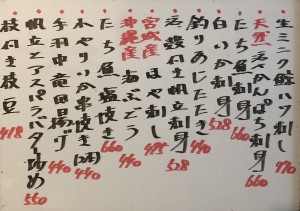 生ミンク鯨ハツ刺し 770
天然活かんぱち刺身 660
たち魚刺身 660
白いか刺身 528
釣りあじたたき 440
活殻付き帆立刺身 528
宮城産ほや刺し 495
沖縄産海ぶどう
たち魚塩焼き 660
小やりいか串焼き(2本) 440
手羽中竜田揚げ 440
帆立とアスパラバター炒め 550
枝付き枝豆 418